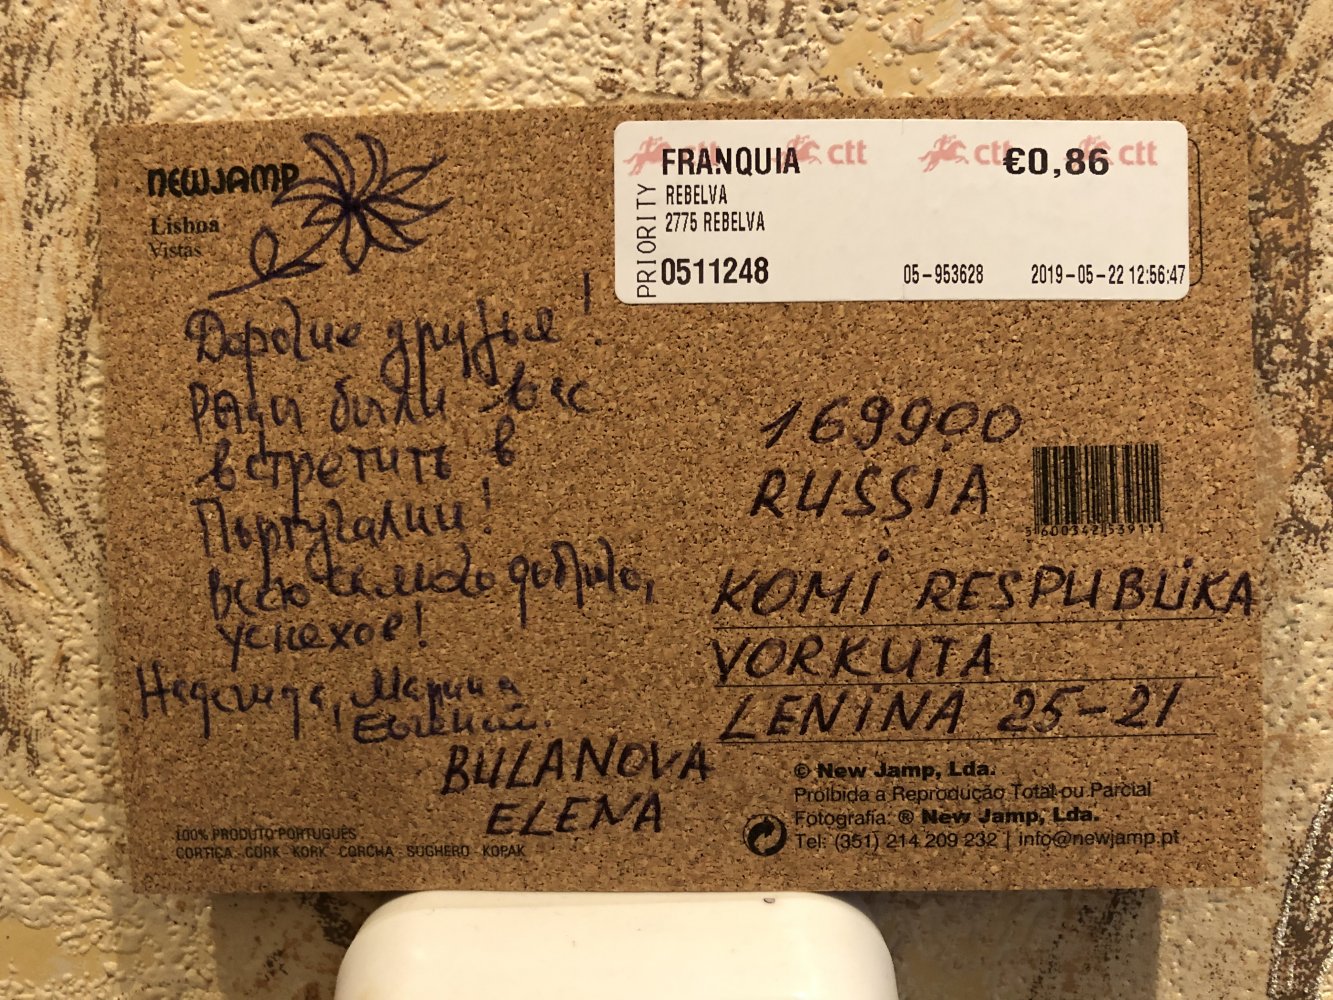 NEWJAMP
Lisboa
Vistas
FRANQUIA
€0,86
ctt ctt ctt ctt
REBELVA
2775 REBELVA
PRIORITY
0511248
05-953628
2019-05-22 12:56:47
Дорогие друзья!
Рады были вас
встретить в
Португалии!
Всего самого доброго,
успехов!
Надежда, Марина
Евгений.
BULANOVA
ELENA
169900
RUSSIA
5 600342 539111
KOMI RESPUBLIKA
VORKUTA
LENINA 25-21
© New Jamp, Lda.
Proibida a Reprodução Total ou Parcial
Fotografia: ® New Jamp, Lda.
Tel: (351) 214 209 232 | info@newjamp.pt
100% PRODUTO PORTUGUÊS
CORTIÇA CORK KORK CORCHA SUGHERO KOPAK